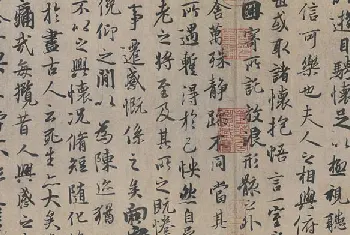 遊目騁懷足以極視聽
信可樂也夫人之相與俯
世或取諸懷抱悟言一室
因寄所託放浪形骸之外
舍萬殊靜躁不同當其
所遇蹔得於己怏然自
老之將至及其所之既惓
事遷感慨係之矣向
俛仰之閒以為陳迹猶
不以之興懷況脩短隨化
於盡古人云死生亦大矣
痛哉每攬昔人興感之